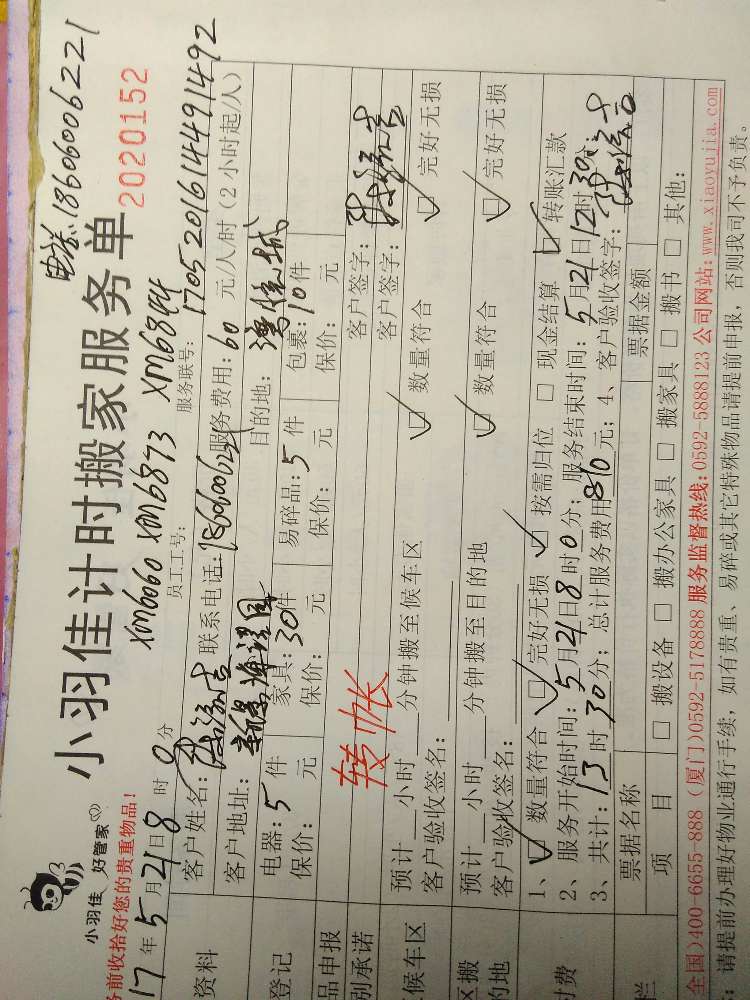 电话18606006221
小羽佳计时搬家服务单
2020152
小羽佳 好管家
务前收拾好您的贵重物品！
XM6060 XM6873 XM6844
员工工号：
服务联号：1705201614491492
17年5月21日8时0分
资料
客户姓名：
联系电话：18606006221
服务费用：60元/人/时（2小时起/人）
客户地址：
目的地：
登记
电器：5件
家具：30件
易碎品：5件
包裹：10件
保价： 元
保价： 元
保价： 元
保价： 元
品申报
转帐
客户签字：
别承诺
客户签字：
候车区
预计 小时 分钟搬至候车区
数量符合
完好无损
客户验收签名：
区搬
的地
预计 小时 分钟搬至目的地
数量符合
完好无损
客户验收签名：
付费
1、 数量符合 完好无损 按需归位 现金结算 转账汇款
2、服务开始时间：5月21日8时0分；服务结束时间：5月21日12时30分；
3、共计：13时30分；总计服务费用810元；4、客户验收签字：
票据名称
票据金额
栏
项 目
搬设备 搬办公家具 搬家具 搬书 其他：
全国)400-6655-888 (厦门)0592-5178888 服务监督热线:0592-5888123 公司网站:www.xiaoyujia.com
：请提前办理好物业通行手续，如有贵重、易碎或其它特殊物品请提前申报，否则我司不予负责。